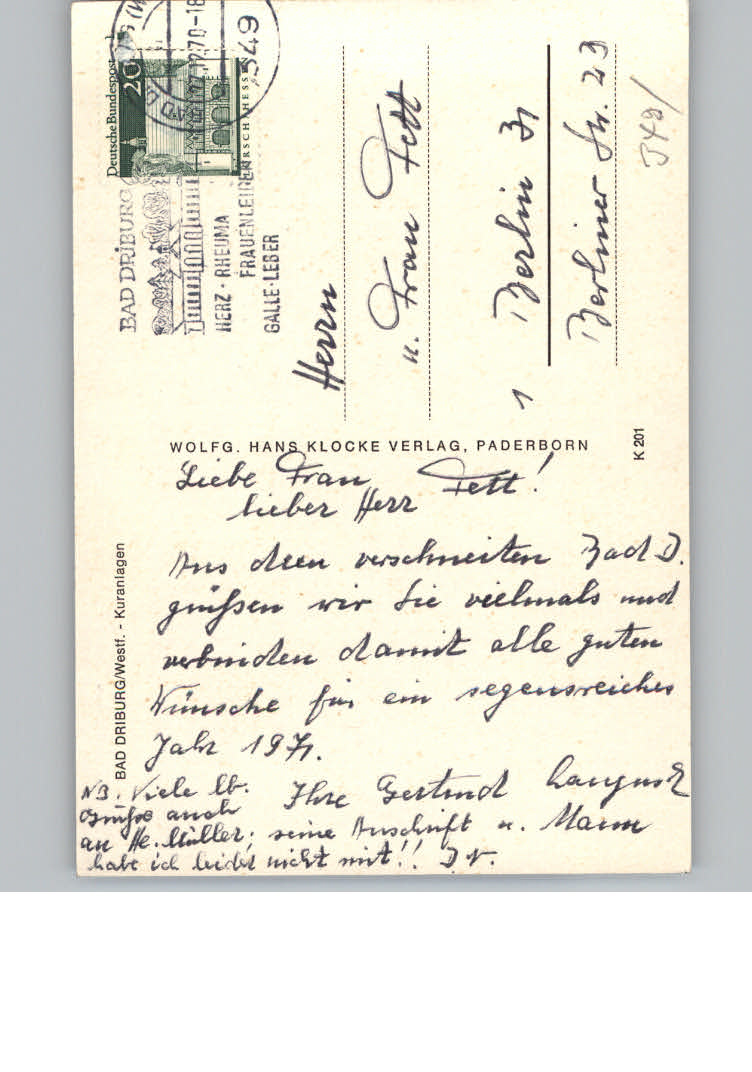 Deutsche Bundespost
20
LORSCH/HESSEN
349
12.70-18
BAD DRIBURG
HERZ · RHEUMA
FRAUENLEIDEN
GALLE · LEBER
Herrn
u. Frau Fett
1 Berlin 31
Berliner Str. 23
349/
WOLFG. HANS KLOCKE VERLAG, PADERBORN
K 201
BAD DRIBURG/Westf. - Kuranlagen
Liebe Frau Fett!
lieber Herr
Aus dem verschneiten Bad D.
grüßen wir Sie vielmals und
verbinden damit alle guten
Wünsche für ein segensreiches
Jahr 1971.
Ihre Gertrud
u. Mann
NB. Viele lb.
Grüße auch
an He. Müller; seine Anschrift
habe ich leider nicht mit!!